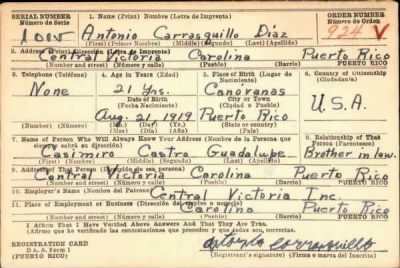 SERIAL NUMBER 1. Name (Print) Nombre (Letra de Imprenta) ORDER NUMBER
Número de Serie Número de Orden
Antonio Carrasquillo Díaz 924 V
(First) (Primer Nombre) (Middle) (Segundo) (Last) (Apellido)
2. Address (Print) Dirección (Letra de Imprenta)
Central Victoria Carolina Puerto Rico
(Number and street) (Número y calle) (Town) (Barrio) PUERTO RICO
3. Telephone (Teléfono) 4. Age in Years (Edad) 5. Place of Birth (Lugar de Nacimiento) 6. Country of Citizenship (Ciudadanía)
None 21 Yrs. Canóranas
Date of Birth City or Town
(Fecha Nacimiento) (Ciudad o Pueblo)
U.S.A.
Aug. 21, 1919 Puerto Rico
(Mes) (Día) (Año)
7. Name of Person Who Will Always Know Your Address (Nombre de la Persona que siempre sabrá su dirección) 8. Relationship of That Person (Parentesco)
Casimiro Castro Guadalupe Brother in law.
(First) (Middle) (Segundo) (Last) (Apellido)
9. Address of That Person (Dirección de esa persona)
Central Victoria Carolina Puerto Rico
(Number and street) (Número y calle) (Town) (Barrio) PUERTO RICO
10. Employer's Name (Nombre del Patrono)
Central Victoria Inc.
11. Place of Employment or Business (Dirección del empleo o negocio)
Carolina Puerto Rico
(Number and street) (Número y calle) (Town) (Barrio) PUERTO RICO
I Affirm That I Have Verified Above Answers And That They Are True.
(Afirmo que he verificado las contestaciones que preceden y que son correctas.
REGISTRATION CARD
D.S.S. Form 1
(PUERTO RICO)
Antonio Carrasquillo
Registrant's signature (Firma o marca del Inscrito)